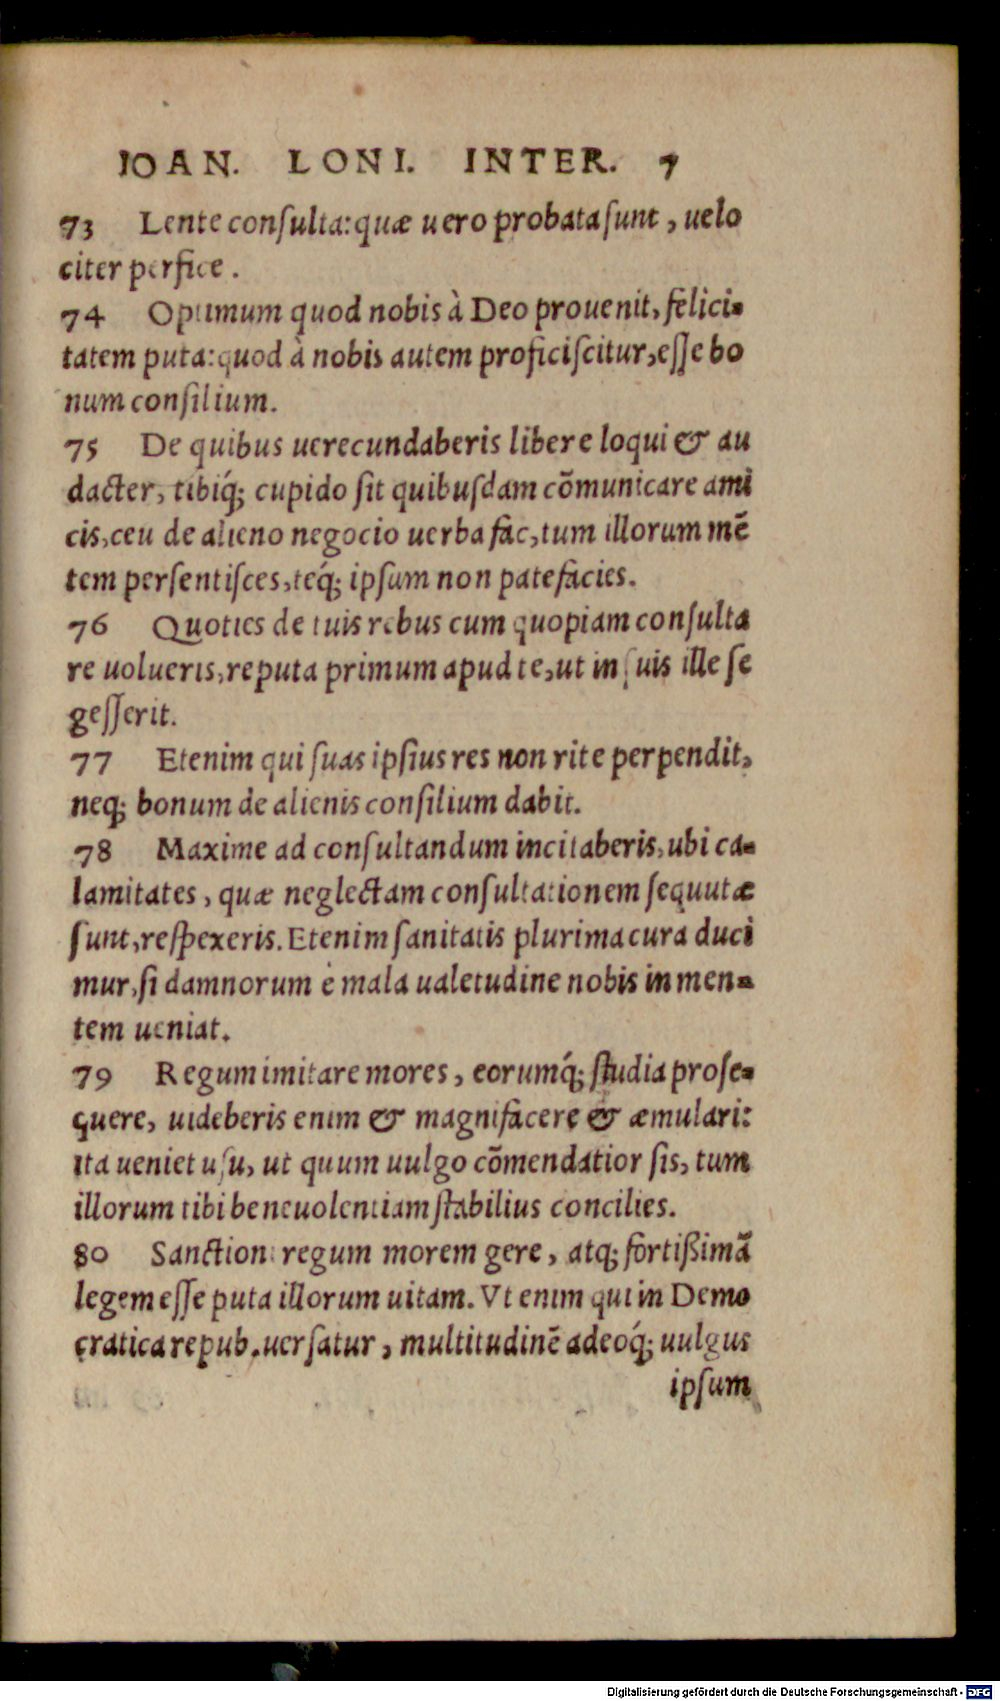 IOAN. LONI. INTER. 7
73 Lente conſulta: quæ uero probata ſunt, uelo
citer perfice.
74 Optimum quod nobis à Deo prouenit, felici-
tatem puta: quod à nobis autem proficiſcitur, eſſe bo
num conſilium.
75 De quibus uerecundaberis libere loqui & au
dacter, tibiq́; cupido ſit quibuſdam cõmunicare ami
cis, ceu de alieno negocio uerba fac, tum illorum mẽ
tem perſentiſces, teq́; ipſum non patefacies.
76 Quoties de tuis rebus cum quopiam conſulta
re uolueris, reputa primum apud te, ut in ſuis ille ſe
geſſerit.
77 Etenim qui ſuas ipſius res non rite perpendit,
neq; bonum de alienis conſilium dabit.
78 Maxime ad conſultandum incitaberis, ubi ca-
lamitates, quæ neglectam conſultationem ſequutæ
ſunt, reſpexeris. Etenim ſanitatis plurima cura duci
mur, ſi damnorum è mala ualetudine nobis in men-
tem ueniat.
79 Regum imitare mores, eorumq́; ſtudia proſe-
quere, uideberis enim & magnifacere & æmulari:
ita ueniet uſu, ut quum uulgo cõmendatior ſis, tum
illorum tibi beneuolentiam ſtabilius concilies.
80 Sanctioni regum morem gere, atq; fortißimã
legem eſſe puta illorum uitam. Vt enim qui in Demo
cratica repub. uerſatur, multitudinẽ adeoq́; uulgus
ipſum
Digitalisierung gefördert durch die Deutsche Forschungsgemeinschaft - DFG